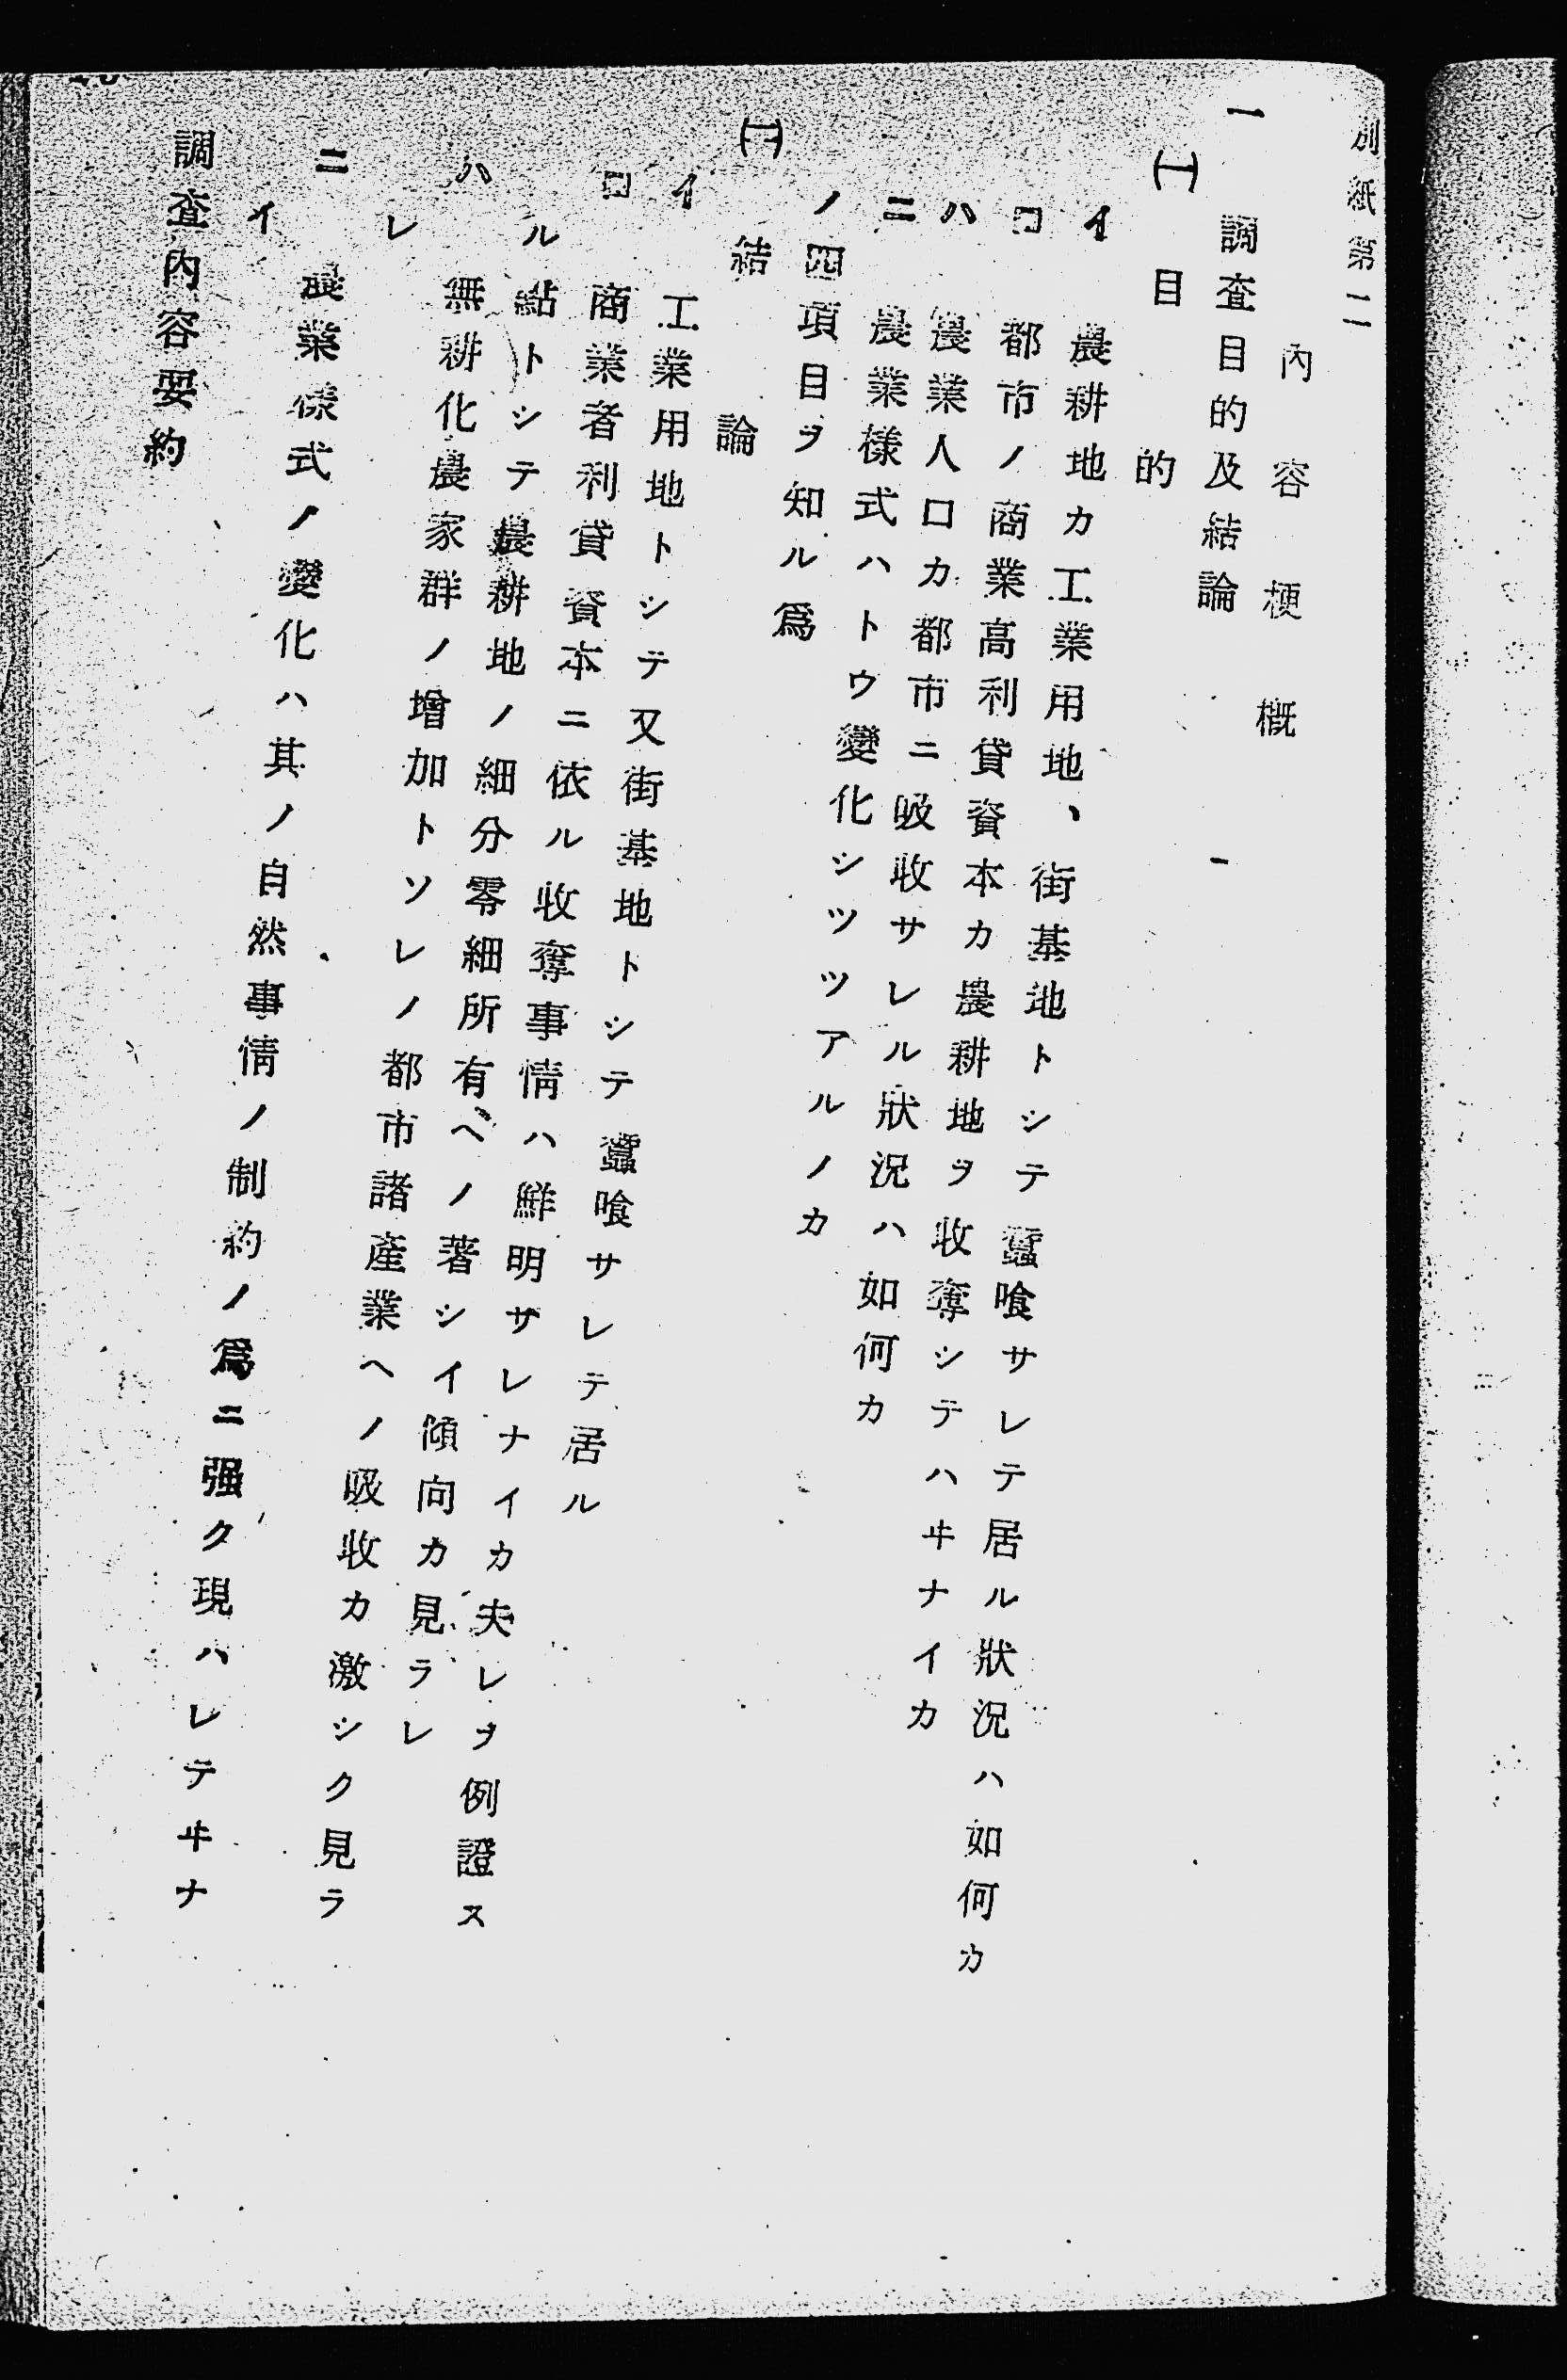 別紙第二
內容梗概
一 調査目的及結論
㈠ 目的
イ 農耕地カ工業用地、街基地トシテ蠶喰サレテ居ル狀況ハ如何カ
ロ 都市ノ商業高利貸資本カ農耕地ヲ收奪シテハヰナイカ
ハ 農業人口カ都市ニ吸收サレル狀況ハ如何カ
ニ 農業樣式ハトウ變化シツツアルノカ
ノ四項目ヲ知ル爲
㈡ 結論
イ 工業用地トシテ又街基地トシテ蠶喰サレテ居ル
ロ 商業者利貸資本ニ依ル收奪事情ハ鮮明サレナイカ夫レヲ例證ス
ル點トシテ農耕地ノ細分零細所有ヘノ著シイ傾向カ見ラレ
ハ 無耕化農家群ノ增加トソレノ都市諸產業ヘノ吸收カ激シク見ラ
レ
ニ 農業樣式ノ變化ハ其ノ自然事情ノ制約ノ爲ニ强ク現ハレテヰナ
イ
調査內容要約